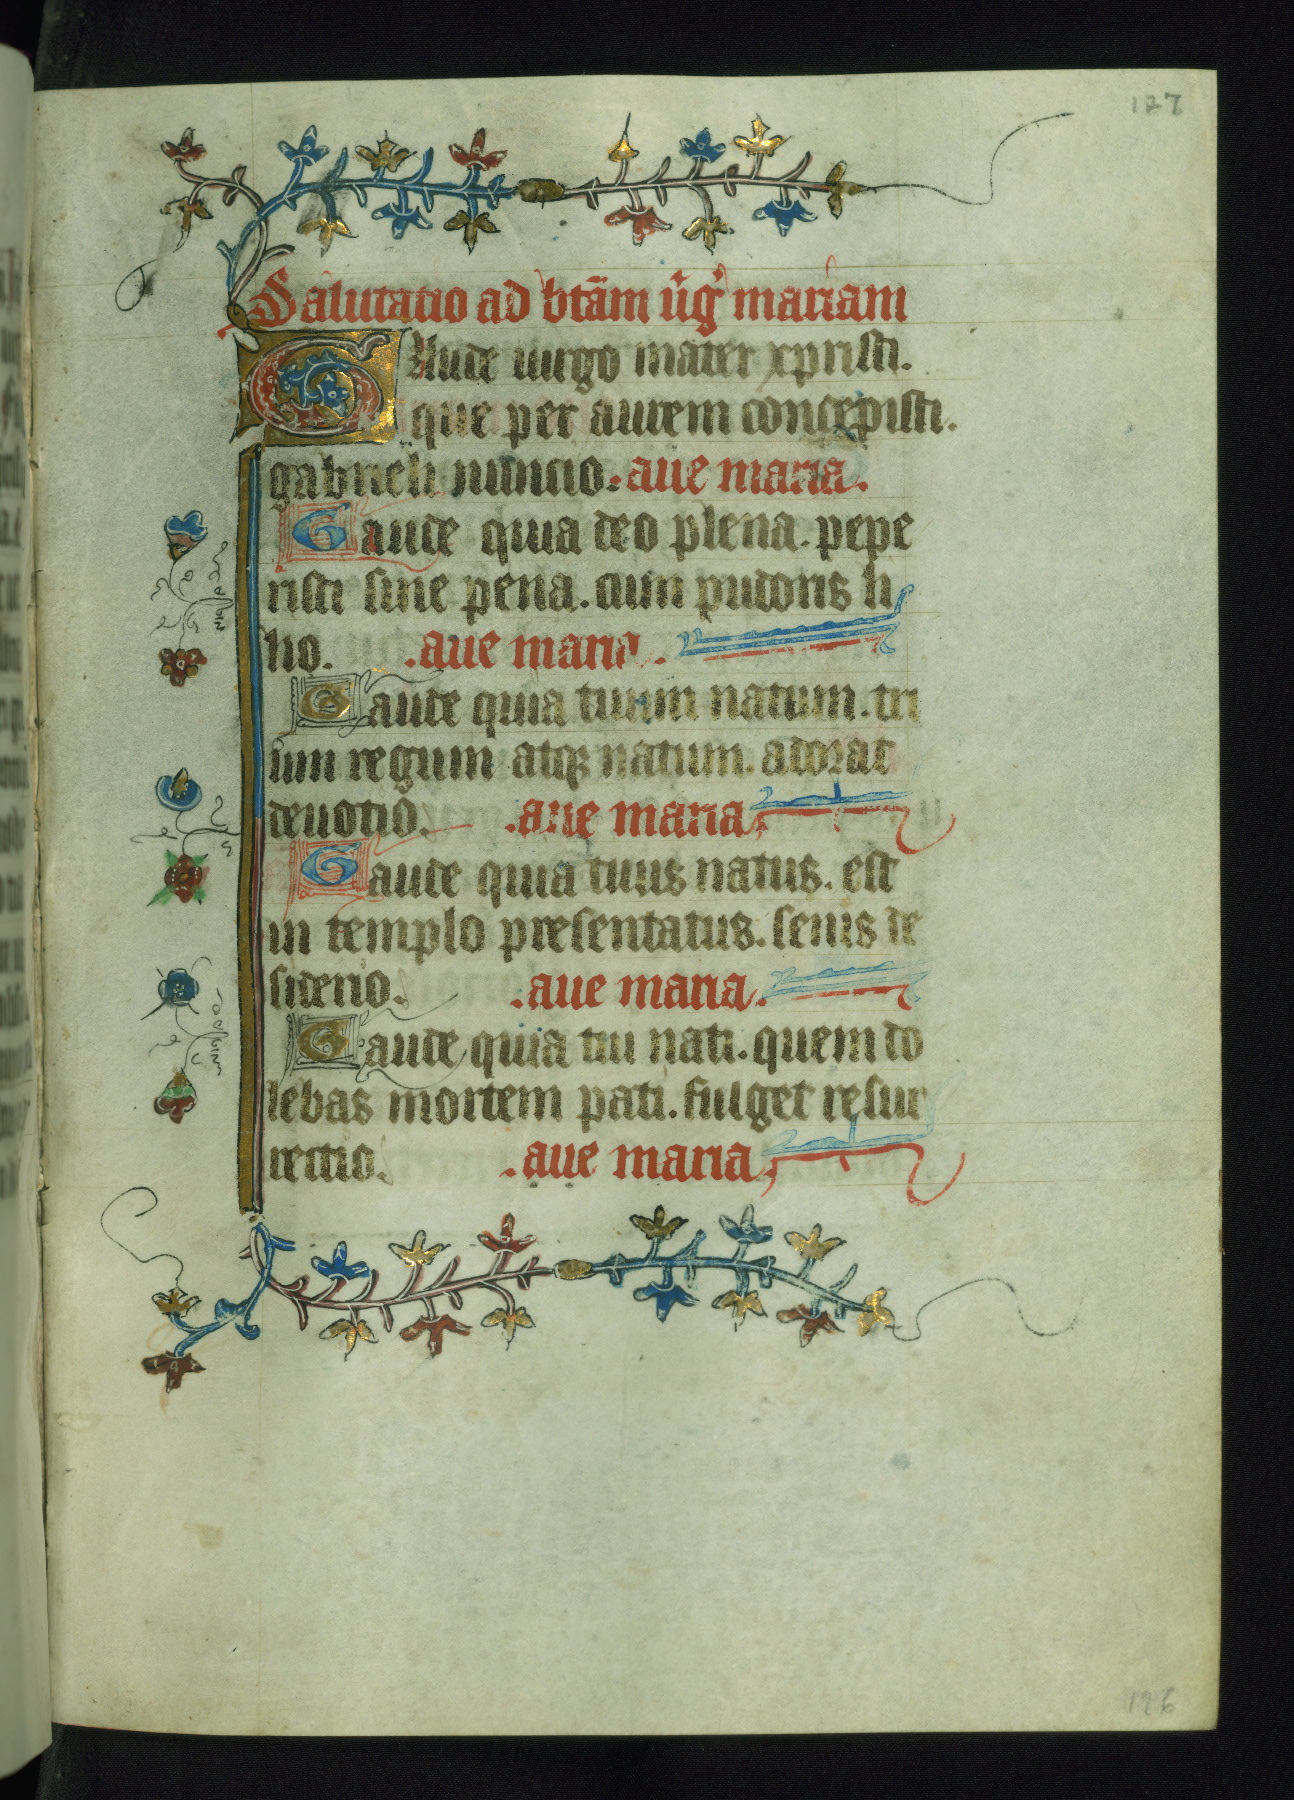 127
Salutatio ad btām v̄g̕ mariam
GAude uirgo mater xpristi.
que per aurem concepisti.
gabrieli nuncio. aue maria.
Gaude quia deo plena. pepe
risti sine pena. cum pudoris li
lio. .aue maria.
Gaude quia tuum natum. tri
um regum atqꝫ natum. adorat
deuotio. .aue maria.
Gaude quia tuus natus. est
in templo presentatus. senis de
siderio. .aue maria.
Gaude quia tui nati. quem do
lebas mortem pati. fulget resur
rectio. .aue maria.
126